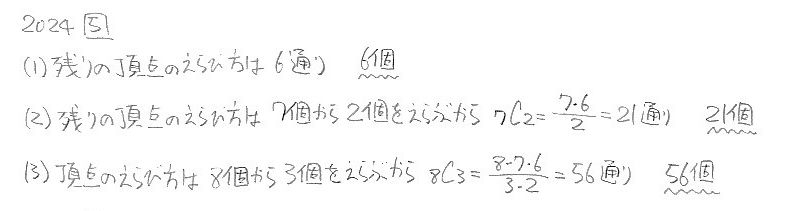 2024 5
(1) 残りの頂点のえらび方は 6通り 6個
(2) 残りの頂点のえらび方は 7個から2個をえらぶから 7C2 = 7・6/2 = 21通り 21個
(3) 頂点のえらび方は 8個から3個をえらぶから 8C3 = 8・7・6/3・2 = 56通り 56個